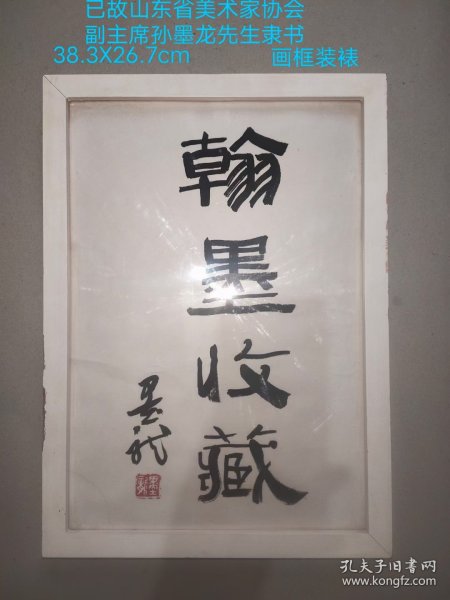 已故山东省美术家协会
副主席孙墨龙先生隶书
38.3X26.7cm 画框装裱
翰墨收藏
墨龙
孔夫子旧书网
www.kongfz.com